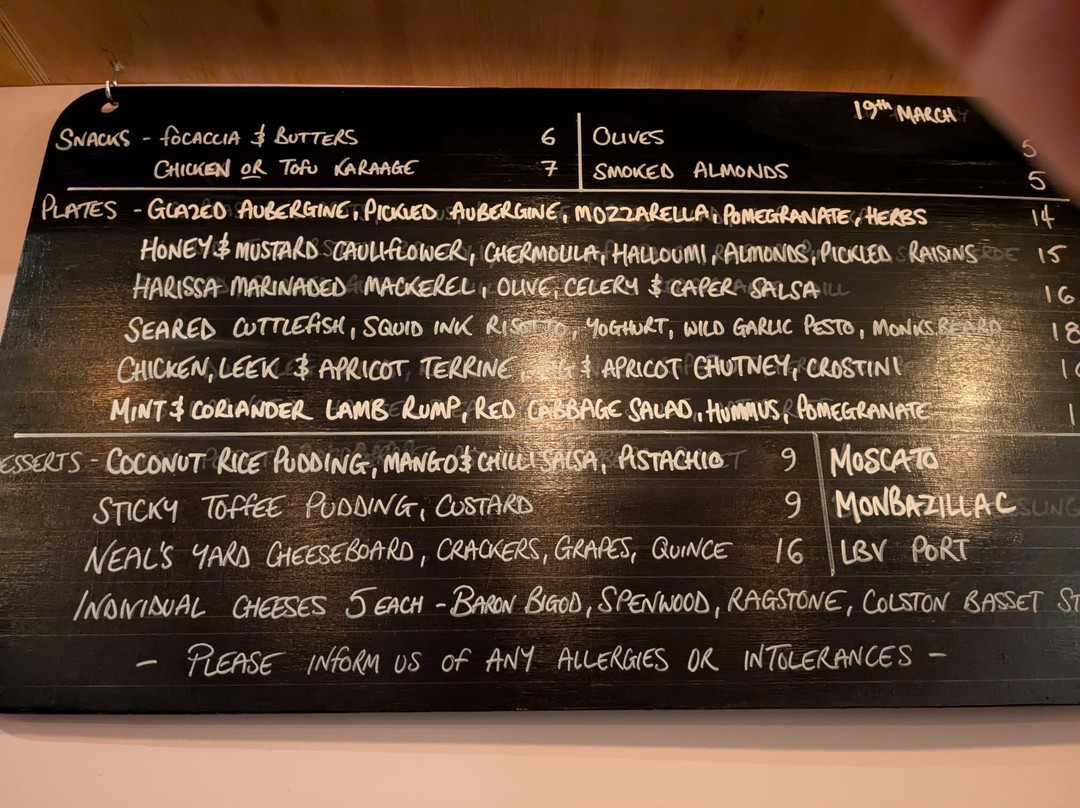 19th MARCH
SNACKS - FOCACCIA & BUTTERS 6
CHICKEN OR TOFU KARAAGE 7
OLIVES 5
SMOKED ALMONDS 5
PLATES - GLAZED AUBERGINE, PICKLED AUBERGINE, MOZZARELLA, POMEGRANATE, HERBS 14
HONEY & MUSTARD CAULIFLOWER, CHERMOULA, HALLOUMI, ALMONDS, PICKLED RAISINS 15
HARISSA MARINADED MACKEREL, OLIVE, CELERY & CAPER SALSA 16
SEARED CUTTLEFISH, SQUID INK RISOTTO, YOGHURT, WILD GARLIC PESTO, MONKSBEARD 18
CHICKEN, LEEK & APRICOT TERRINE, FIG & APRICOT CHUTNEY, CROSTINI
MINT & CORIANDER LAMB RUMP, RED CABBAGE SALAD, HUMMUS, POMEGRANATE
ESSERTS - COCONUT RICE PUDDING, MANGO & CHILLI SALSA, PISTACHIO 9
STICKY TOFFEE PUDDING, CUSTARD 9
NEAL'S YARD CHEESEBOARD, CRACKERS, GRAPES, QUINCE 16
MOSCATO
MONBAZILLAC
LBV PORT
INDIVIDUAL CHEESES 5 EACH - BARON BIGOD, SPENWOOD, RAGSTONE, COLSTON BASSET ST
- PLEASE INFORM US OF ANY ALLERGIES OR INTOLERANCES -